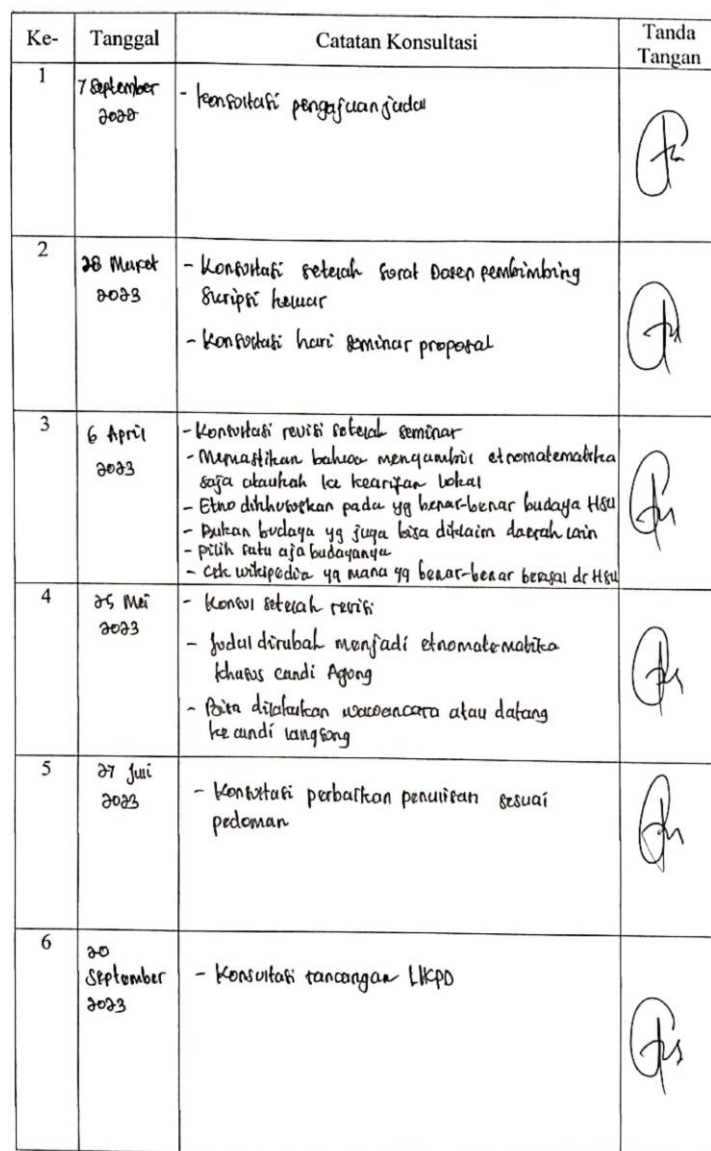 Ke-
Tanggal
Catatan Konsultasi
Tanda
Tangan
1
7 September
2022
- Konsultasi pengajuan judul
2
28 Maret
2023
- Konsultasi setelah surat Dosen pembimbing
skripsi keluar
- Konsultasi hari seminar proposal
3
6 April
2023
- Konsultasi revisi setelah seminar
- Memastikan bahwa mengambil etnomatematika
saja ataukah ke kearifan lokal
- Etno dikhususkan pada yg benar-benar budaya HSU
- Bukan budaya yg juga bisa diklaim daerah lain
- pilih satu aja budayanya
- Cek wikipedia yg mana yg benar-benar berasal dr HSU
4
25 Mei
2023
- Konsul setelah revisi
- Judul dirubah menjadi etnomatematika
khusus candi Agong
- Bisa dilakukan wawancara atau datang
ke candi langsong
5
27
2023
- Konsultasi perbaikan penulisan sesuai
pedoman
6
20
September
2023
- Konsultasi rancangan LKPD